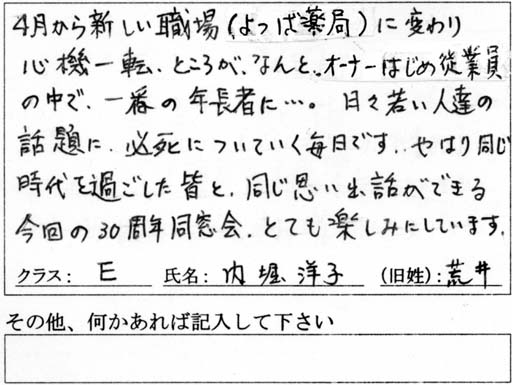 4月から新しい職場(よつば薬局)に変わり
心機一転、ところが、なんと、オーナーはじめ従業員
の中で、一番の年長者に…。日々若い人達の
話題に、必死についていく毎日です。やはり同じ
時代を過ごした皆と、同じ思い出話ができる
今回の30周年同窓会、とても楽しみにしています。
クラス: E 氏名: 内堀 洋子 (旧姓): 荒井
その他、何かあれば記入して下さい